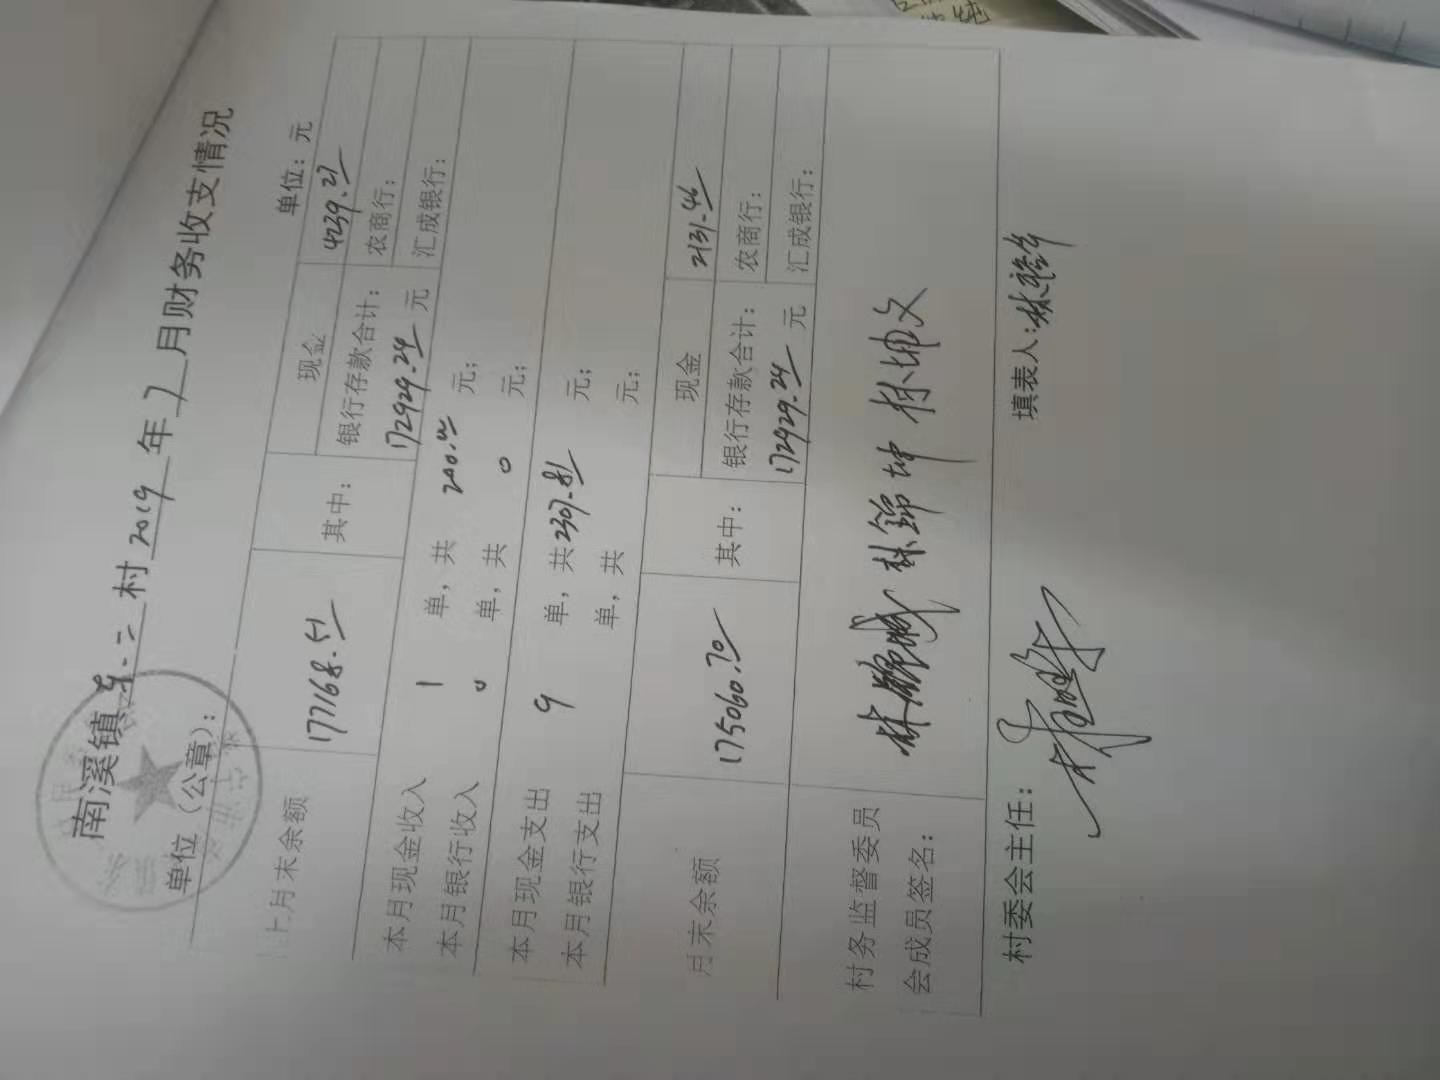 南溪镇东二村2019年7月财务收支情况
单位(公章): 单位:元
上月末余额 177168.51 其中: 现金 4239.27
银行存款合计: 172929.24 元 农商行:
汇成银行:
本月现金收入 1 单,共 200.00 元;
本月银行收入 0 单,共 0 元;
本月现金支出 9 单,共 2307.81 元;
本月银行支出 单,共 元;
月末余额 175060.70 其中: 现金 2131.46
银行存款合计: 172929.24 元 农商行:
汇成银行:
村务监督委员
会成员签名: 林锦坤 林坤文
村委会主任: 填表人: